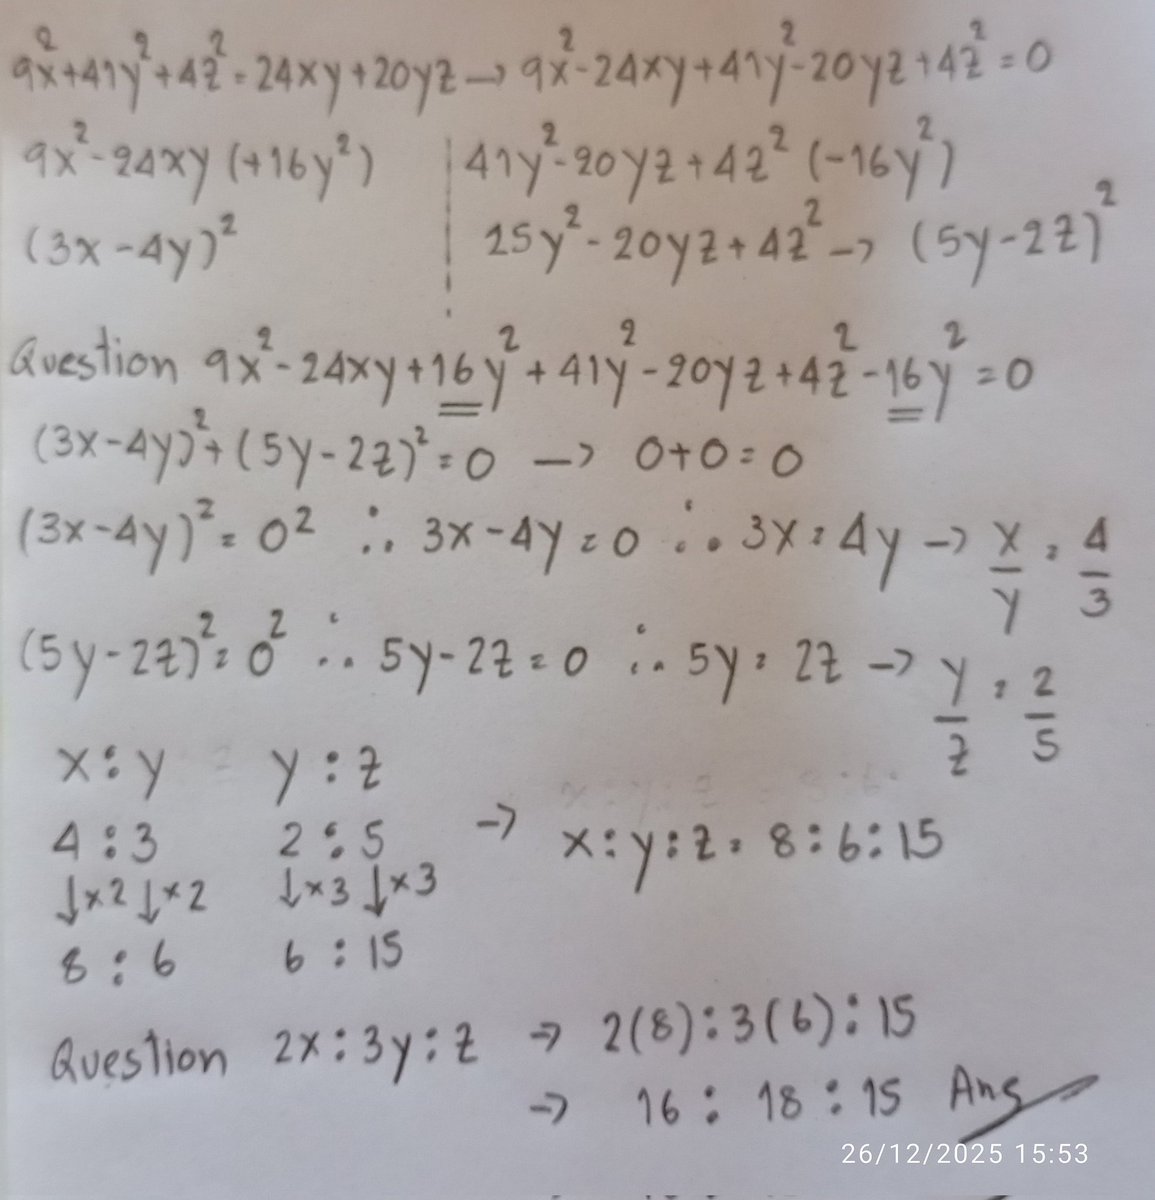 9x²+41y²+4z²=24xy+20yz → 9x²-24xy+41y²-20yz+4z²=0
9x²-24xy (+16y²) | 41y²-20yz+4z² (-16y²)
(3x-4y)² | 25y²-20yz+4z² → (5y-2z)²
Question 9x²-24xy+16y²+41y²-20yz+4z²-16y²=0
(3x-4y)²+(5y-2z)²=0 → 0+0=0
(3x-4y)²=0² ∴ 3x-4y=0 ∴ 3x=4y → x/y = 4/3
(5y-2z)²=0² ∴ 5y-2z=0 ∴ 5y=2z → y/z = 2/5
x:y y:z
4:3 2:5 → x:y:z=8:6:15
↓×2 ↓×2 ↓×3 ↓×3
8:6 6:15
Question 2x:3y:z → 2(8):3(6):15
→ 16:18:15 Ans
26/12/2025 15:53